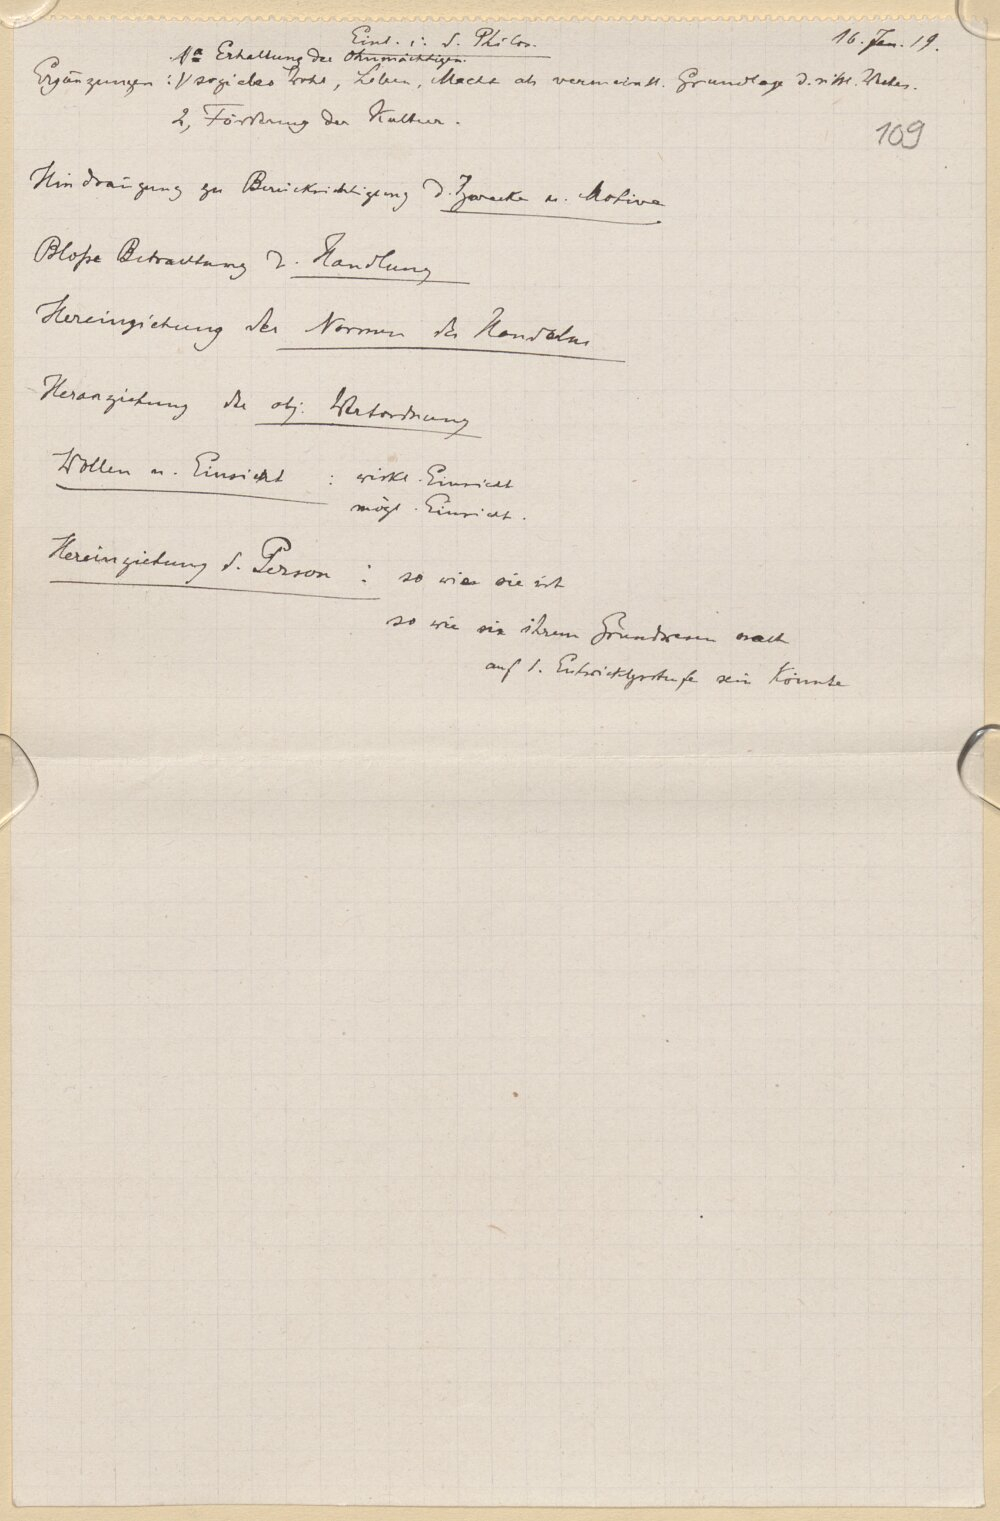 Einl. i. d. Philos.
16. Jan. 19.
1a Erhaltung der Ohnmächtigen.
Ergänzungen: 1/ soziales Wohl, Leben, Macht als vermeintl. Grundlage d. sittl. Wertes.
2, Förderung der Kultur.
109
Hindrängung zu Berücksichtigung d. Zwecke u. Motive
Bloße Betrachtung d. Handlung
Hereinziehung der Normen des Handelns
Heranziehung der obj. Wertordnung
Wollen u. Einsicht : wirkl. Einsicht
mögl. Einsicht.
Hereinziehung d. Person : so wie sie ist
so wie sie ihrem Grundwesen nach
auf d. Entwicklgsstufe sein könnte